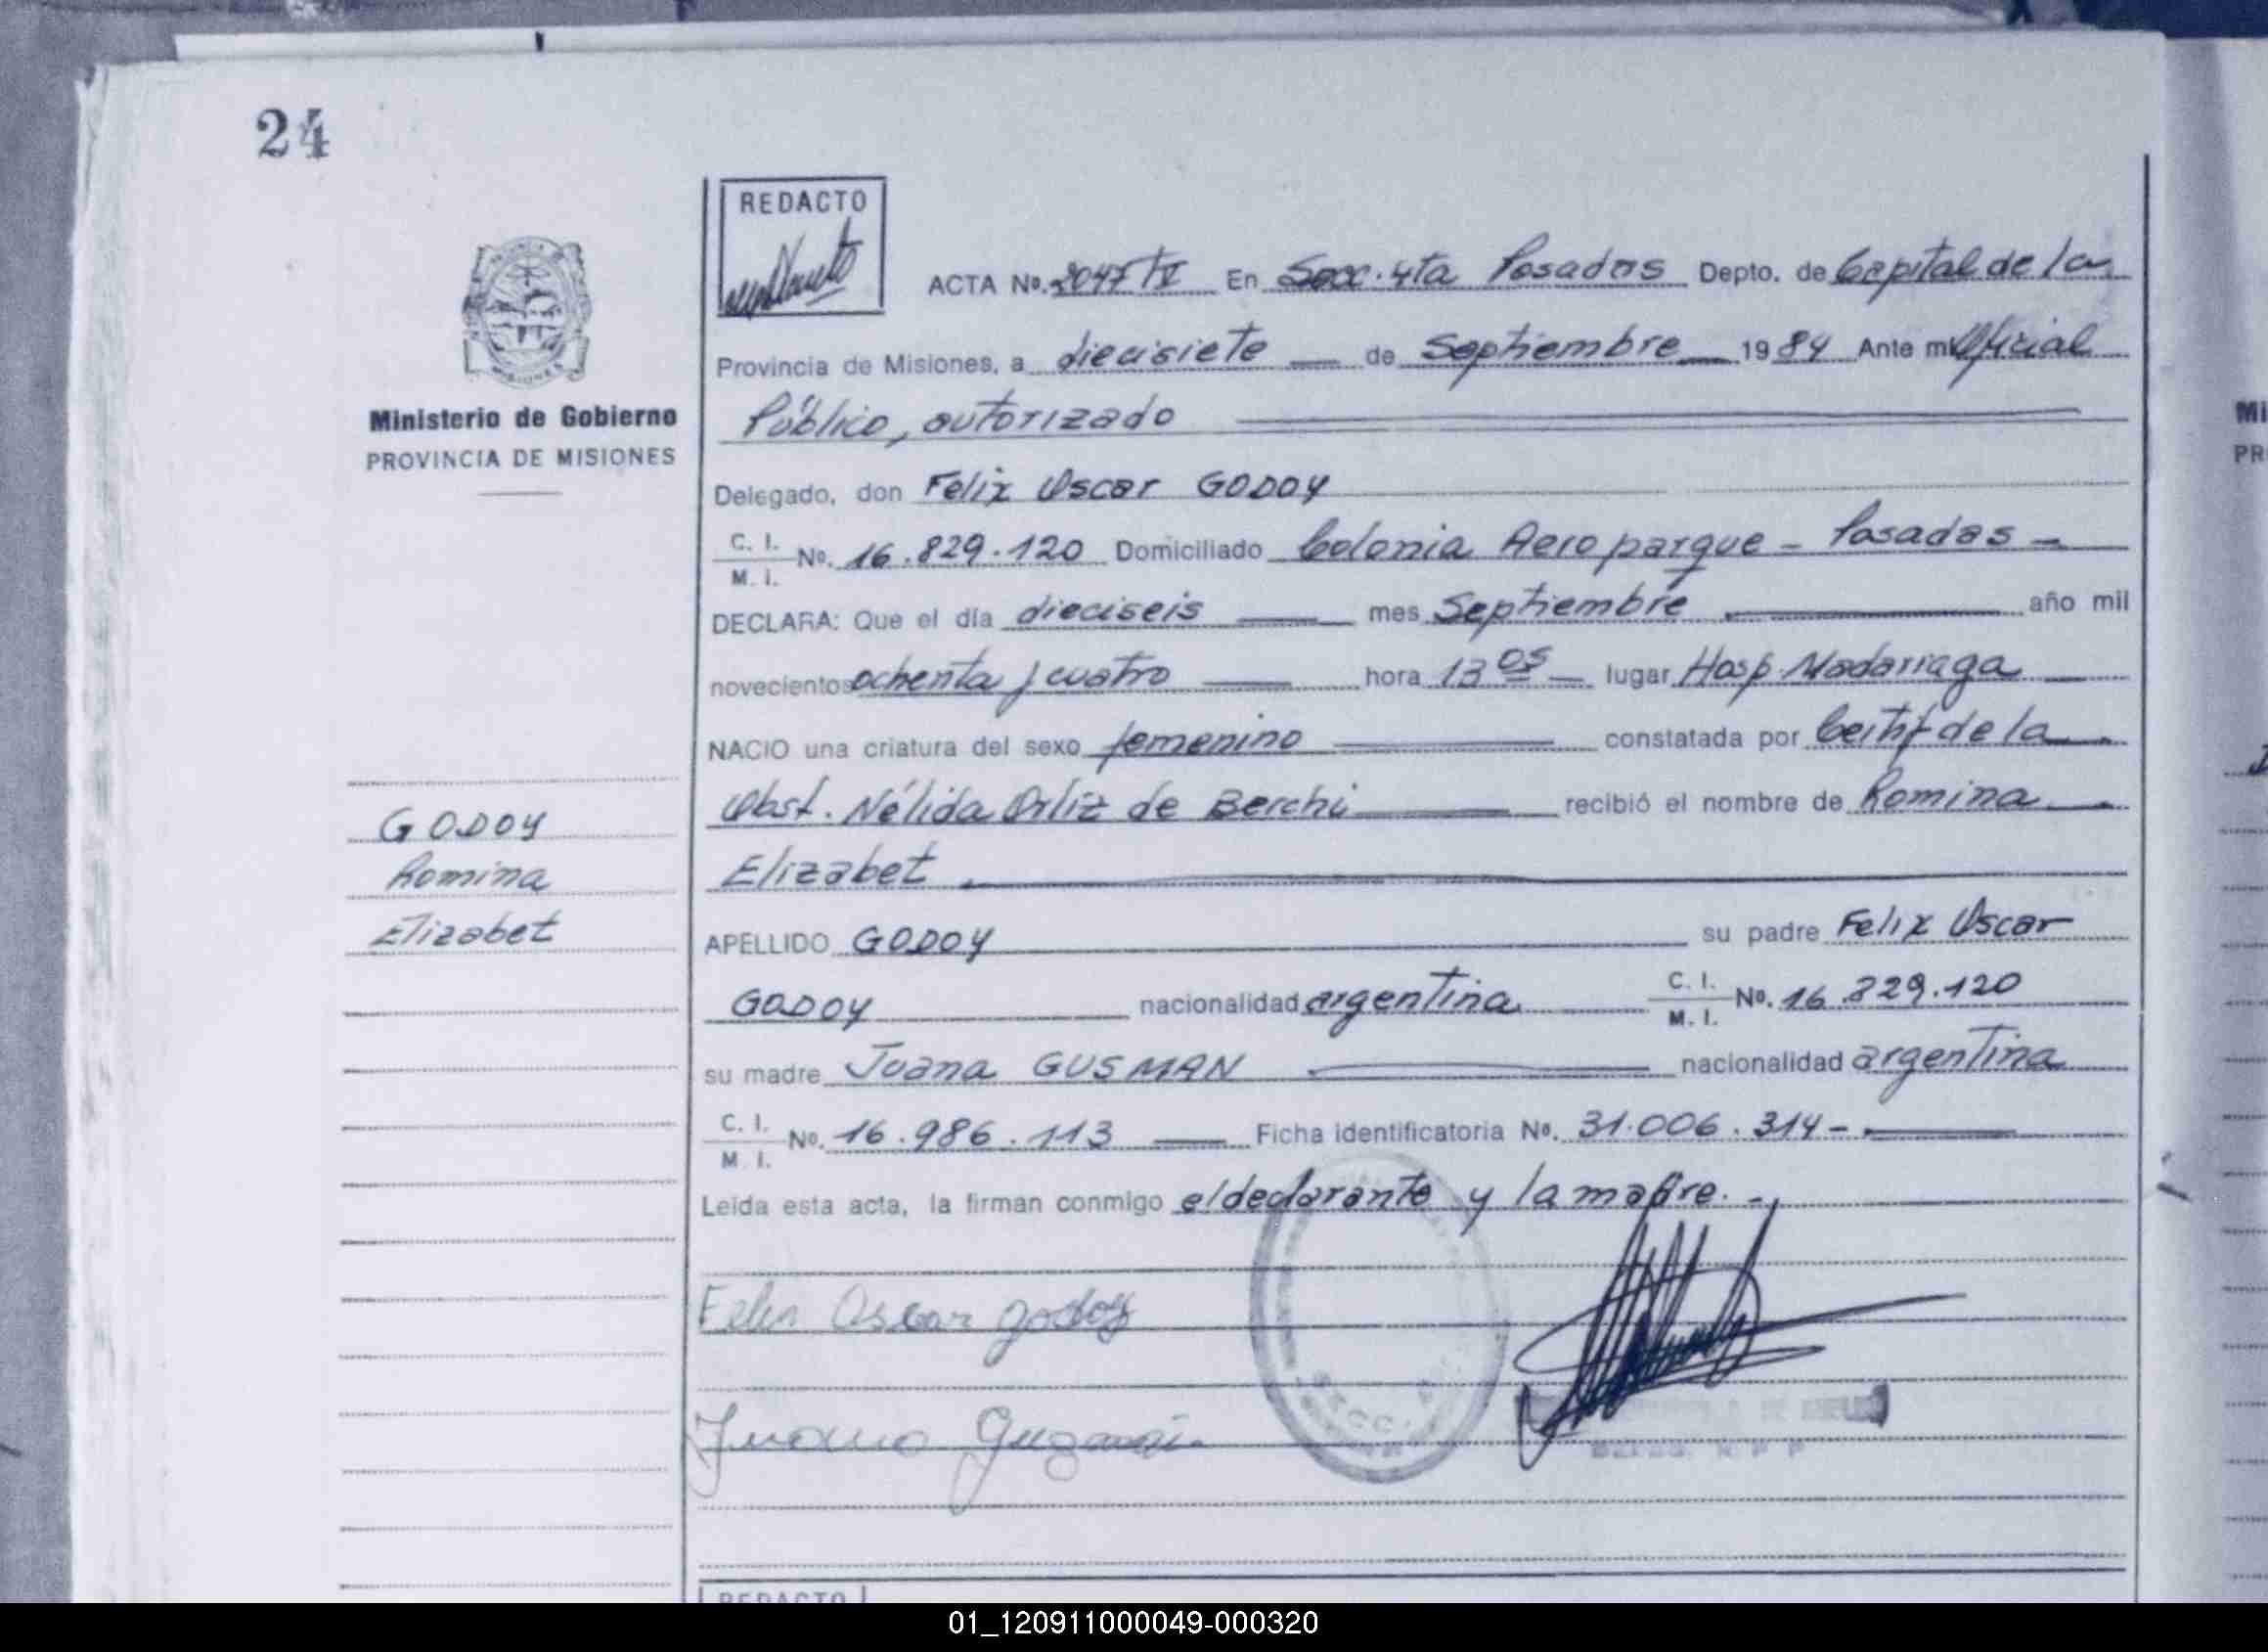 24
REDACTO
ACTA No. 2047 IV En Secc. 4ta Posadas Depto. de Capital de la
Provincia de Misiones, a diecisiete de Septiembre 1984 Ante mi Oficial
Público, autorizado
Ministerio de Gobierno
PROVINCIA DE MISIONES
Delegado, don Felix Oscar GODOY
C. I.
M. I.
No. 16.829.120 Domiciliado Colonia Aeroparque - Posadas -
DECLARA: Que el día dieciseis mes Septiembre año mil
novecientos ochenta y cuatro hora 13 05 lugar Hosp. Madariaga
NACIO una criatura del sexo femenino constatada por Certif de la
Obst. Nélida Ortiz de Berchi recibió el nombre de Romina
Elizabet
GODOY
Romina
Elizabet
APELLIDO GODOY su padre Felix Oscar
GODOY nacionalidad argentina C. I. M. I. No. 16.829.120
su madre Juana GUSMAN nacionalidad argentina
C. I.
M. I.
No. 16.986.113 Ficha identificatoria No. 31.006.314 -
Leída esta acta, la firman conmigo el declarante y la madre. -
Felix Oscar godoy
REDACTO
01_120911000049-000320